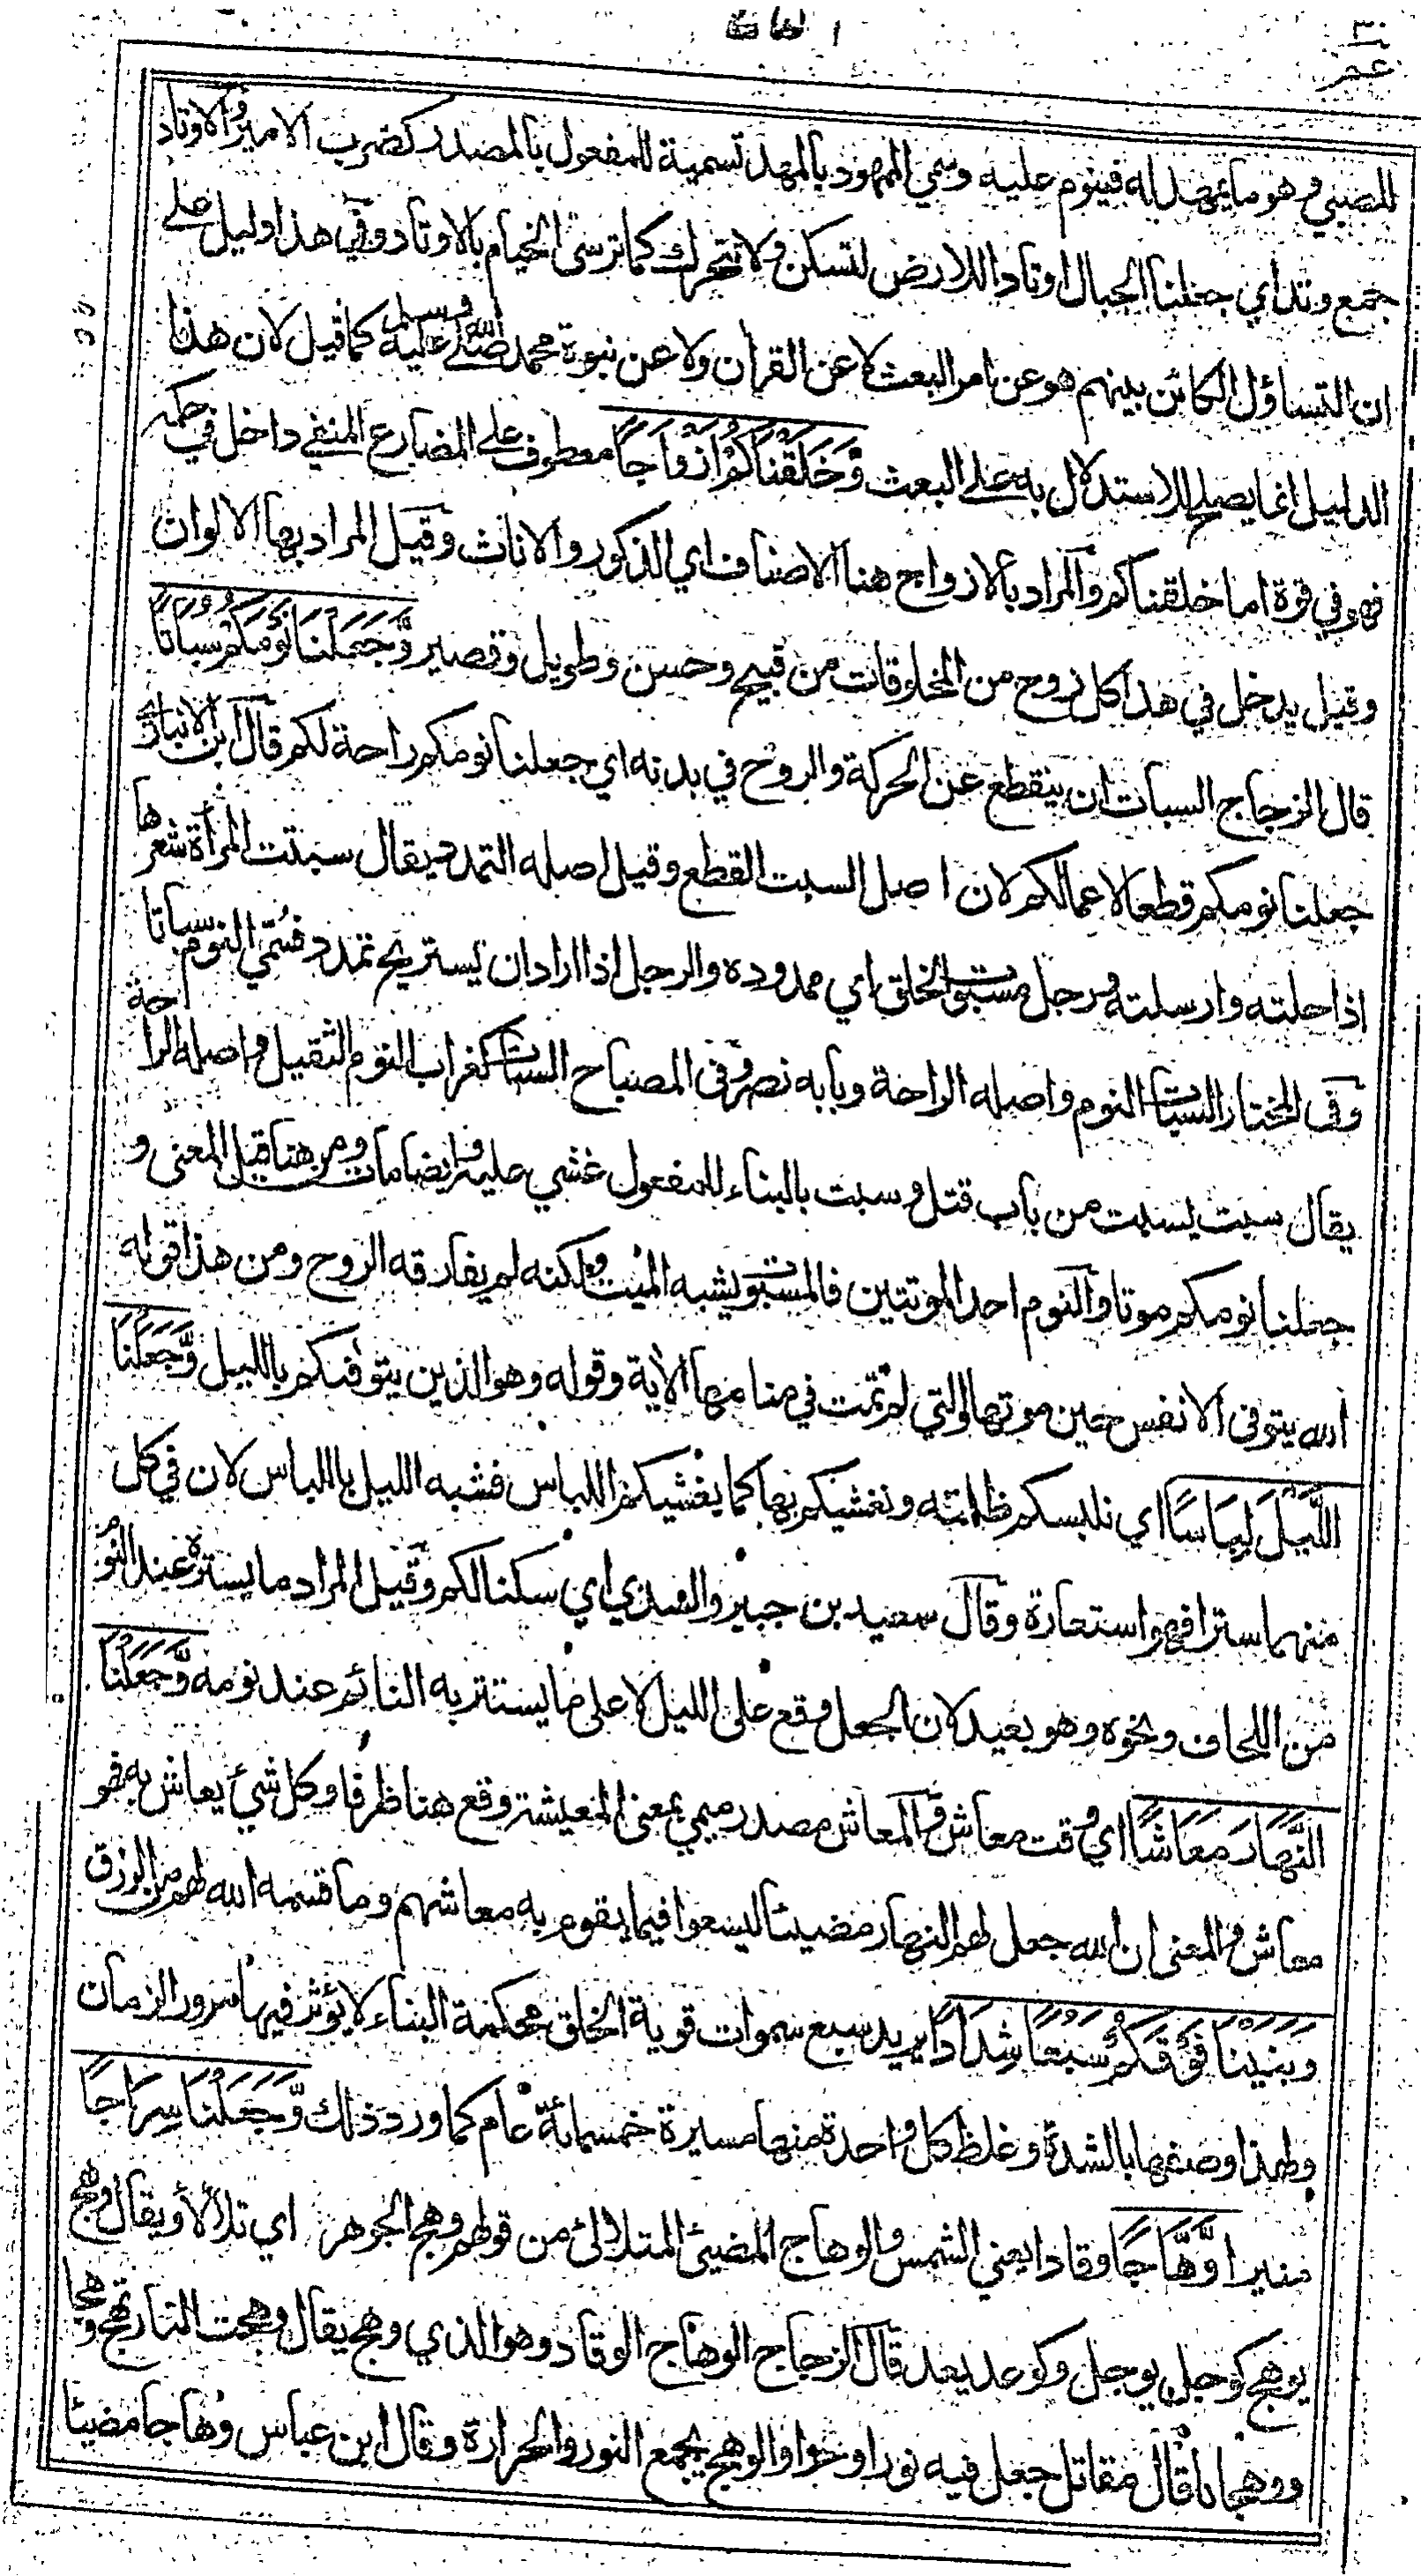 عم
للصبي وهو ما يمهد له فينوم عليه وسمي الممهود بالمهد تسمية للمفعول بالمصدر كضرب الامير والاوتاد
جمع وتد أي جعلنا الجبال اوتادا للارض لتسكن ولا تتحرك كما ترسى الخيام بالاوتاد وفي هذا دليل على
ان التساؤل الكائن بينهم هو عن امر البعث لا عن القرآن ولا عن نبوة محمد صلى الله عليه وسلم كما قيل لان هذا
الدليل انما يصلح للاستدلال به على البعث وَخَلَقْنَاكُمْ أَزْوَاجًا معطوف على المضارع المنفي داخل في حكمه
فهو في قوة اما خلقناكم والمراد بالازواج هنا الاصناف اي الذكور والاناث وقيل المراد بها الالوان
وقيل يدخل في هذا كل زوج من المخلوقات من قبيح وحسن وطويل وقصير وَّجَعَلْنَا نَوْمَكُمْ سُبَاتًا
قال الزجاج السبات ان ينقطع عن الحركة والروح في بدنه اي جعلنا نومكم راحة لكم قال ابن الانباري
جعلنا نومكم قطعا لاعمالكم لان اصل السبت القطع وقيل اصله التمدد يقال سبتت المرأة شعرها
اذا حلته وارسلته ورجل مسبوت الخلق اي ممدوده والرجل اذا اراد ان يستريح تمدد فسمي النوم سباتا
وفي المختار السبات النوم واصله الراحة وبابه نصر وفي المصباح السبات كغراب النوم الثقيل واصله الراحة
يقال سبت يسبت من باب قتل وسبت بالبناء للمفعول غشي عليه وايضا مات ومن هنا قيل المعنى و
جعلنا نومكم موتا والنوم احد الموتتين فالمسبوت يشبه الميت ولكنه لم يفارقه الروح ومن هذا قوله
الله يتوفى الانفس حين موتها والتي لم تمت في منامها الآية وقوله وهو الذين يتوفىكم بالليل وَّجَعَلْنَا
اللَّيْلَ لِبَاسًا اي نلبسكم ظلمته ونغشيكم بها كما يغشيكم اللباس فشبه الليل باللباس لان في كل
منهما سترا فهو استعارة وقال سعيد بن جبير والسدي اي سكنا لكم وقيل المراد ما يستره عند النوم
من اللحاف ونحوه وهو بعيد لان الجعل وقع على الليل لا على ما يستتر به النائم عند نومه وَّجَعَلْنَا
النَّهَارَ مَعَاشًا اي وقت معاش والمعاش مصدر ميمي بمعنى المعيشة وقع هنا ظرفا وكل شيء يعاش به فهو
معاش والمعنى ان الله جعل لهم النهار مضيئا ليسعوا فيما يقوم به معاشهم وما قسمه الله لهم من الرزق
وَبَنَيْنَا فَوْقَكُمْ سَبْعًا شِدَادًا يريد سبع سموات قوية الخلق محكمة البناء لا يؤثر فيها مرور الزمان
ولهذا وصفها بالشدة وغلظ كل واحدة منها مسيرة خمسمائة عام كما ورد ذلك وَّجَعَلْنَا سِرَاجًا
منيرا وَّهَّاجًا وقادا يعني الشمس والوهاج المضيئ المتلالئ من قولهم وهج الجوهر اي تلألأ ويقال وهج
يوهج كوجل يوجل وكوعد يعد قال الزجاج الوهاج الوقاد وهو الذي وهج يقال وهجت النار تهج وهجا
ووهجانا قال مقاتل جعل فيه نورا وحرا والوهج يجمع النور والحرارة وقال ابن عباس وهاجا مضيئا